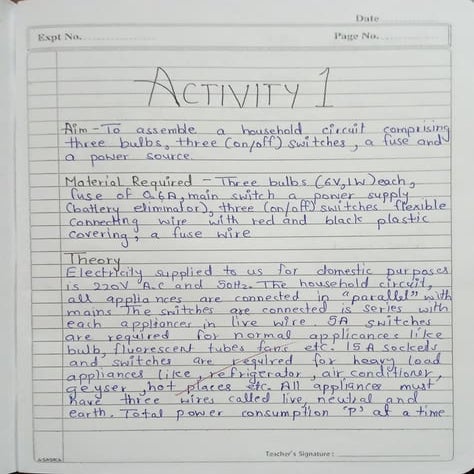 Date
Expt No.
Page No.
ACTIVITY 1
Aim - To assemble a household circuit comprising
three bulbs, three (on/off) switches, a fuse and
a power source.
Material Required - Three bulbs (6V, 1W) each,
fuse of 0.6A, main switch a power supply
(battery eliminator), three (on/off) switches flexible
connecting wire with red and black plastic
covering, a fuse wire
Theory
Electricity supplied to us for domestic purposes
is 220V A.C and 50Hz. The household circuit,
all appliances are connected in "parallel" with
mains. The switches are connected is series with
each appliances in live wire. 5A switches
are required for normal applicances like
bulb, fluorescent tubes fans etc. 15A sockeds
and switches are required for heavy load
appliances like, refrigerator, air conditioner,
geyser, hot places etc. All appliances must
have three wires called live, neutral and
earth. Total power consumption 'P' at a time
Teacher's Signature :